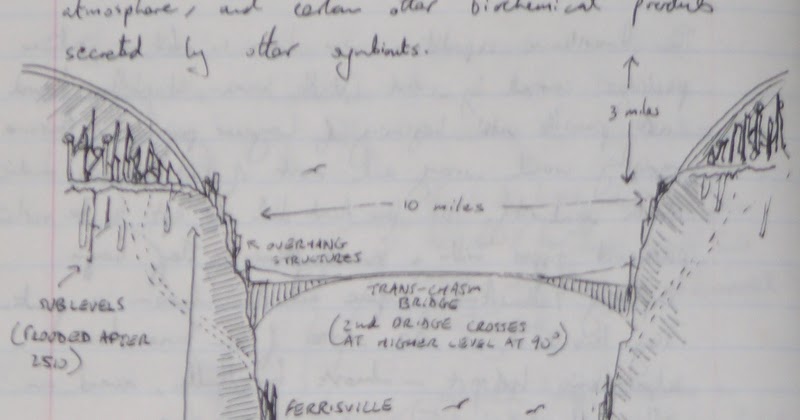 atmosphere, and certain other biochemical products
secreted by other symbionts.
3 miles
10 miles
OVERHANG
STRUCTURES
TRANS-CHASM
BRIDGE
(2nd BRIDGE CROSSES
AT HIGHER LEVEL AT 90°)
SUBLEVELS
(FLOODED AFTER
2510)
FERRISVILLE